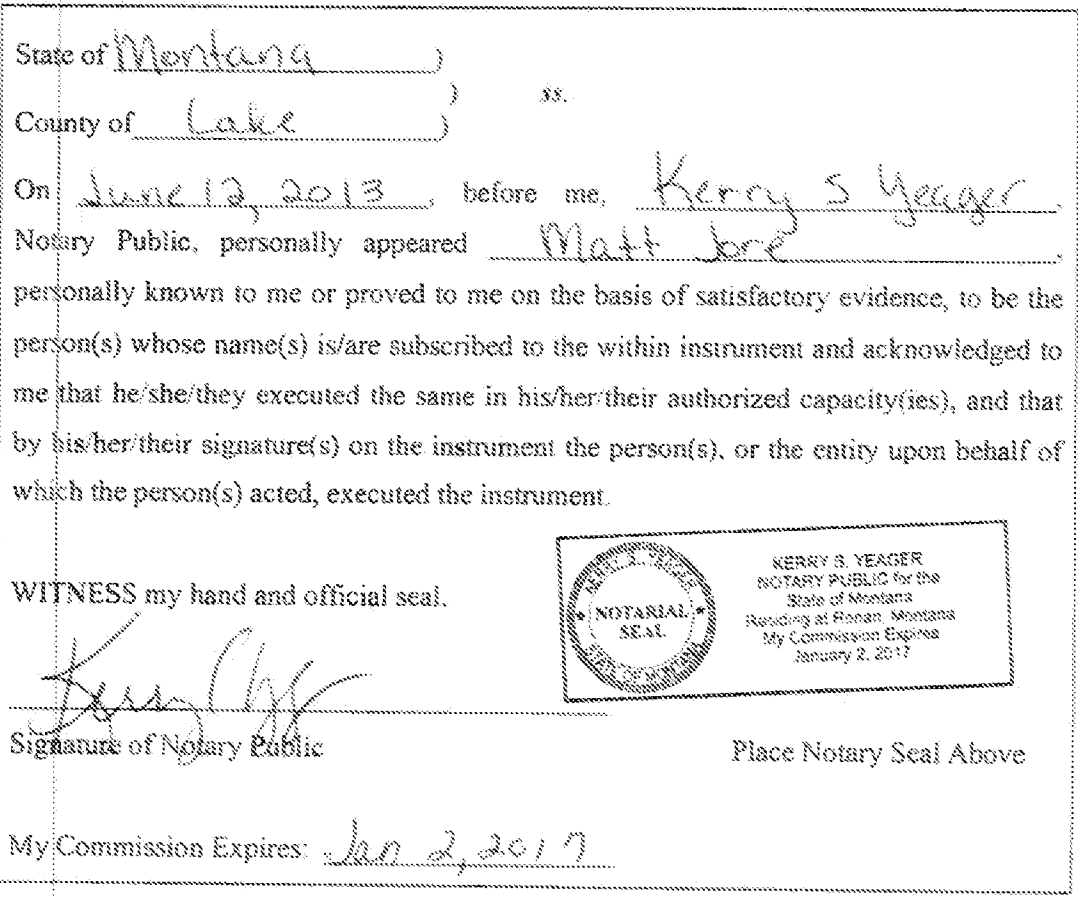 State of Montana )
) ss.
County of Lake )
On June 12, 2013, before me, Kerry S Yeager,
Notary Public, personally appeared Matt Jore,
personally known to me or proved to me on the basis of satisfactory evidence, to be the
person(s) whose name(s) is/are subscribed to the within instrument and acknowledged to
me that he/she/they executed the same in his/her/their authorized capacity(ies), and that
by his/her/their signature(s) on the instrument the person(s), or the entity upon behalf of
which the person(s) acted, executed the instrument.
WITNESS my hand and official seal.
KERRY S. YEAGER
NOTARIAL
SEAL
STATE OF MONTANA
KERRY S. YEAGER
NOTARY PUBLIC for the
State of Montana
Residing at Ronan, Montana
My Commission Expires
January 2, 2017
Signature of Notary Public
Place Notary Seal Above
My Commission Expires: Jan 2, 2017